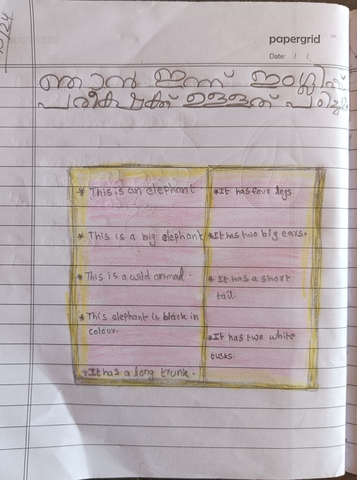 papergrid
Date: / /
ഞാൻ ഇന്ന് ഇംഗ്ലീഷ്
ഉള്ളത് പഠിച്ചു
* This is an elephant
* This is a big elephant
* This is a wild animal.
* This elephant is black in
colour.
* It has a long trunk.
* It has four legs
* It has two big ears.
* It has a short
tail
* It has two white
tusks.